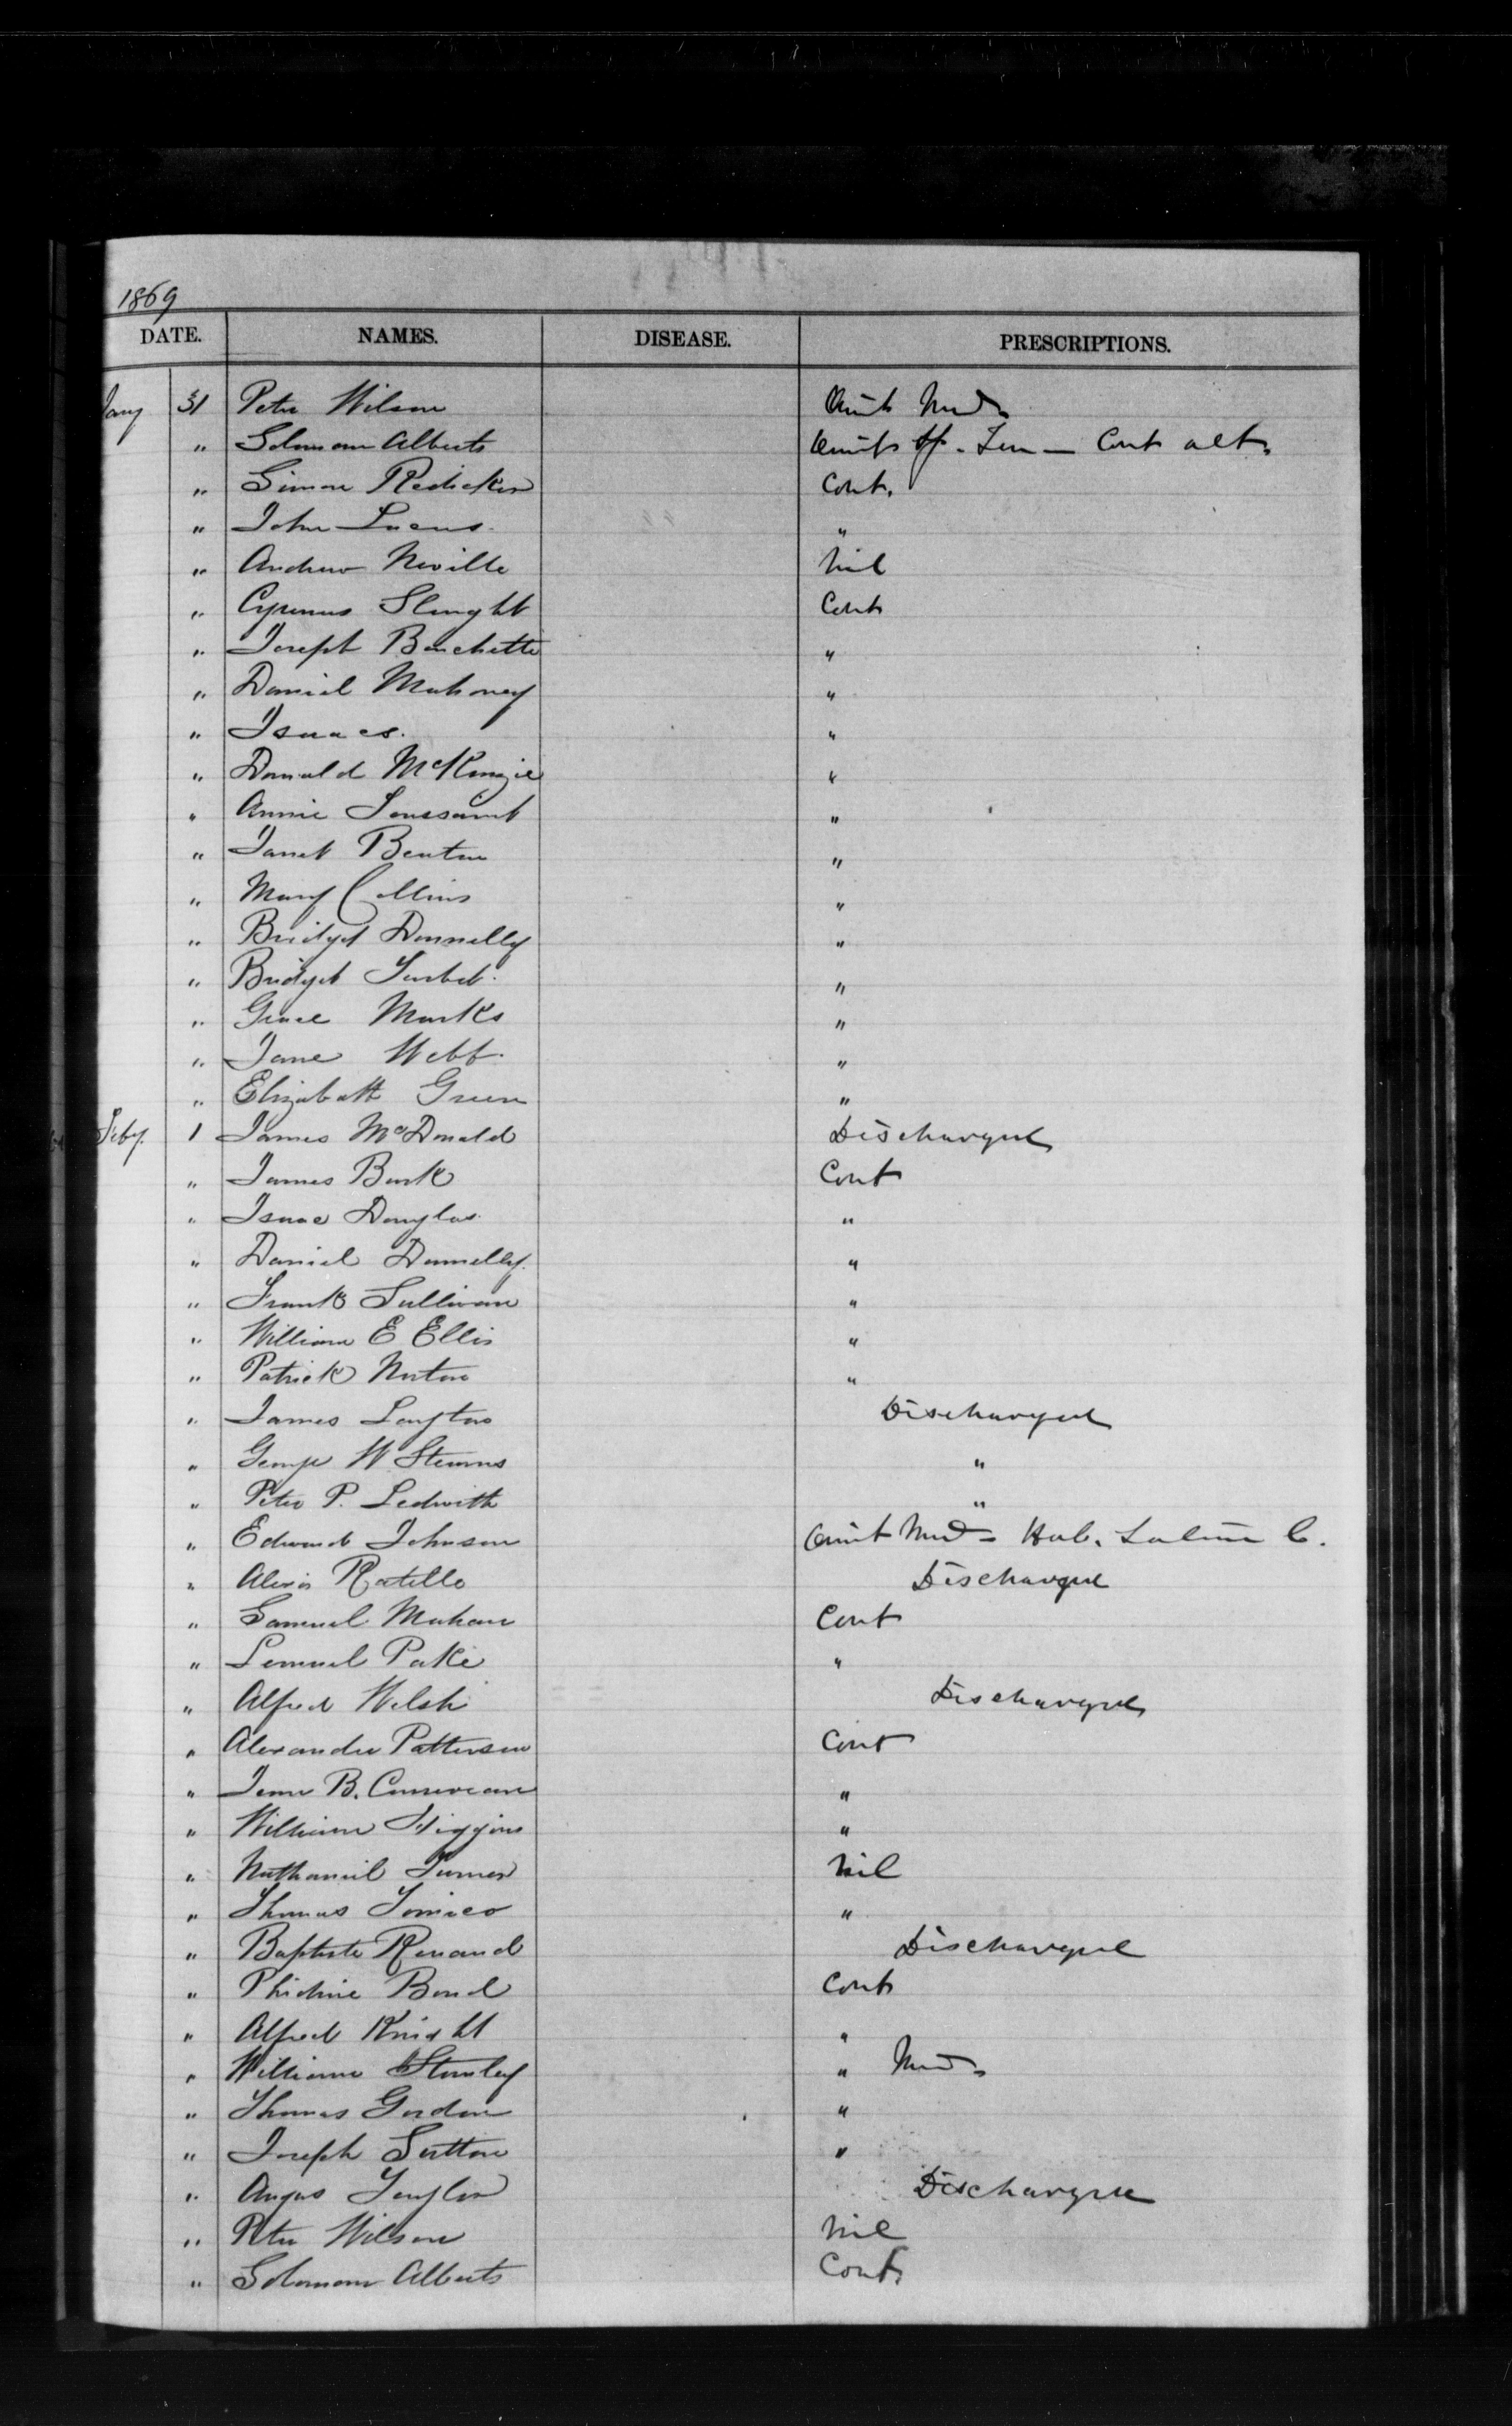 1869
DATE. NAMES. DISEASE. PRESCRIPTIONS.
Jany 31 Peter Wilson Omit Med
" Solomon Alberts Omit Cont alt.
" Simon Cont.
" John Lucas. "
" Andrew Neville Nil
" Cyrenus Slaught Cont
" Joseph Bouchette "
" Daniel Mahoney "
" Isaacs. "
" Donald McKenzie "
" Annie Toussaint "
" Janet Benton "
" Mary Collins "
" Bridget Donnelly "
" Bridget "
" Grace Marks "
" Jane Webb. "
" Elizabeth Green "
Feby. 1 James McDonald Discharged
" James Burk Cont
" Isaac Douglas. "
" Daniel Donnelly. "
" Frank Sullivan "
" William E Ellis "
" Patrick Norton "
" James Langton Discharged
" George W Stearns "
" Peter P. Ledwith "
" Edward Johnson Omit Med - Hab. C.
" Alexis Ratelle Discharged
" Samuel Mahan Cont
" Lemuel Pake "
" Alfred Welsh Discharged
" Alexander Patterson Cont
" B. "
" William Higgins "
" Nathaniel Turner Nil
" Thomas "
" Baptiste Renaud Discharged
" Bond Cont
" Alfred Knight "
" William Stanley " Med
" Thomas Gordon "
" Joseph Sutton "
" Angus Taylor Discharged
" Peter Wilson Nil
" Solomon Alberts Cont.